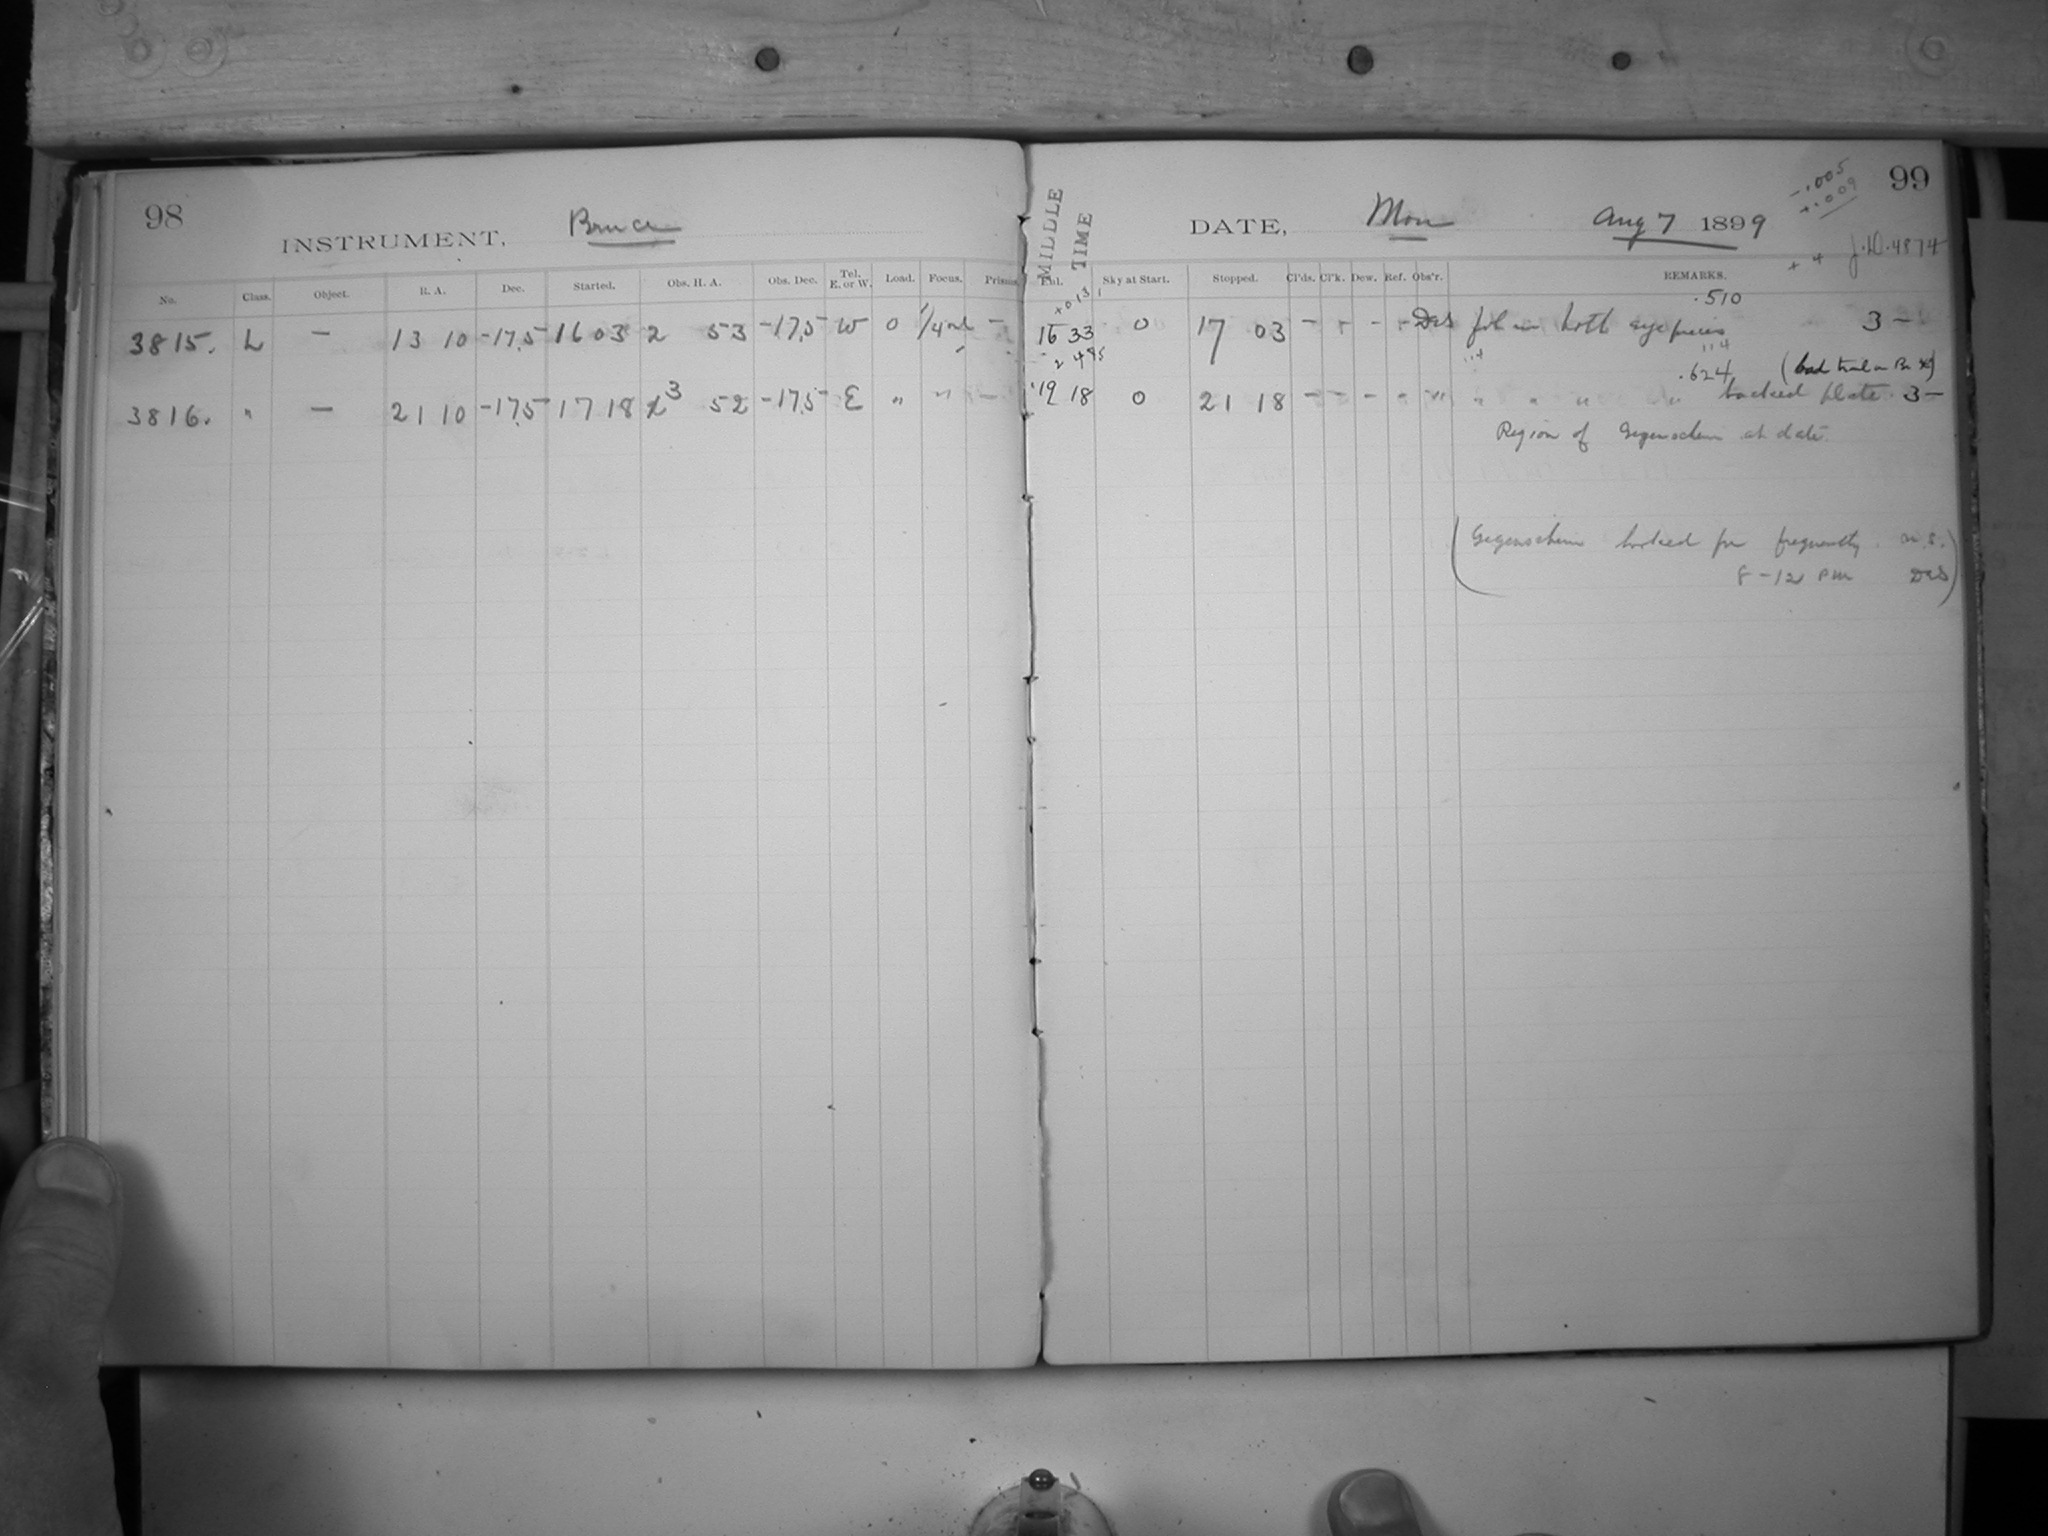 98
INSTRUMENT, Bruce
No. Class. Object. R. A. Dec. Started. Obs. H. A. Obs. Dec. Tel. E. or W. Load. Focus. Prisms
3815. L — 13 10 -17.5 16 03 2 53 -17.5 W 0 —
3816. " — 21 10 -17.5 17 18 3 52 -17.5 E " " —
99
MIDDLE TIME
DATE, Mon Aug 7 1899
-.005
+.009
+ 4 J.D. 4874
Sky at Start. Stopped. Cl'ds. Cl'k. Dew. Ref. Obs'r. REMARKS.
.510
16 33 0 17 03 - - - - DeS fol in both eyepieces 3 —
114
2 485
.624
19 18 0 21 18 - - - " " " " " " backed plate. 3 —
Region of Gegenschein at date.
(Gegenschein looked for frequently
8-12 PM DeS)